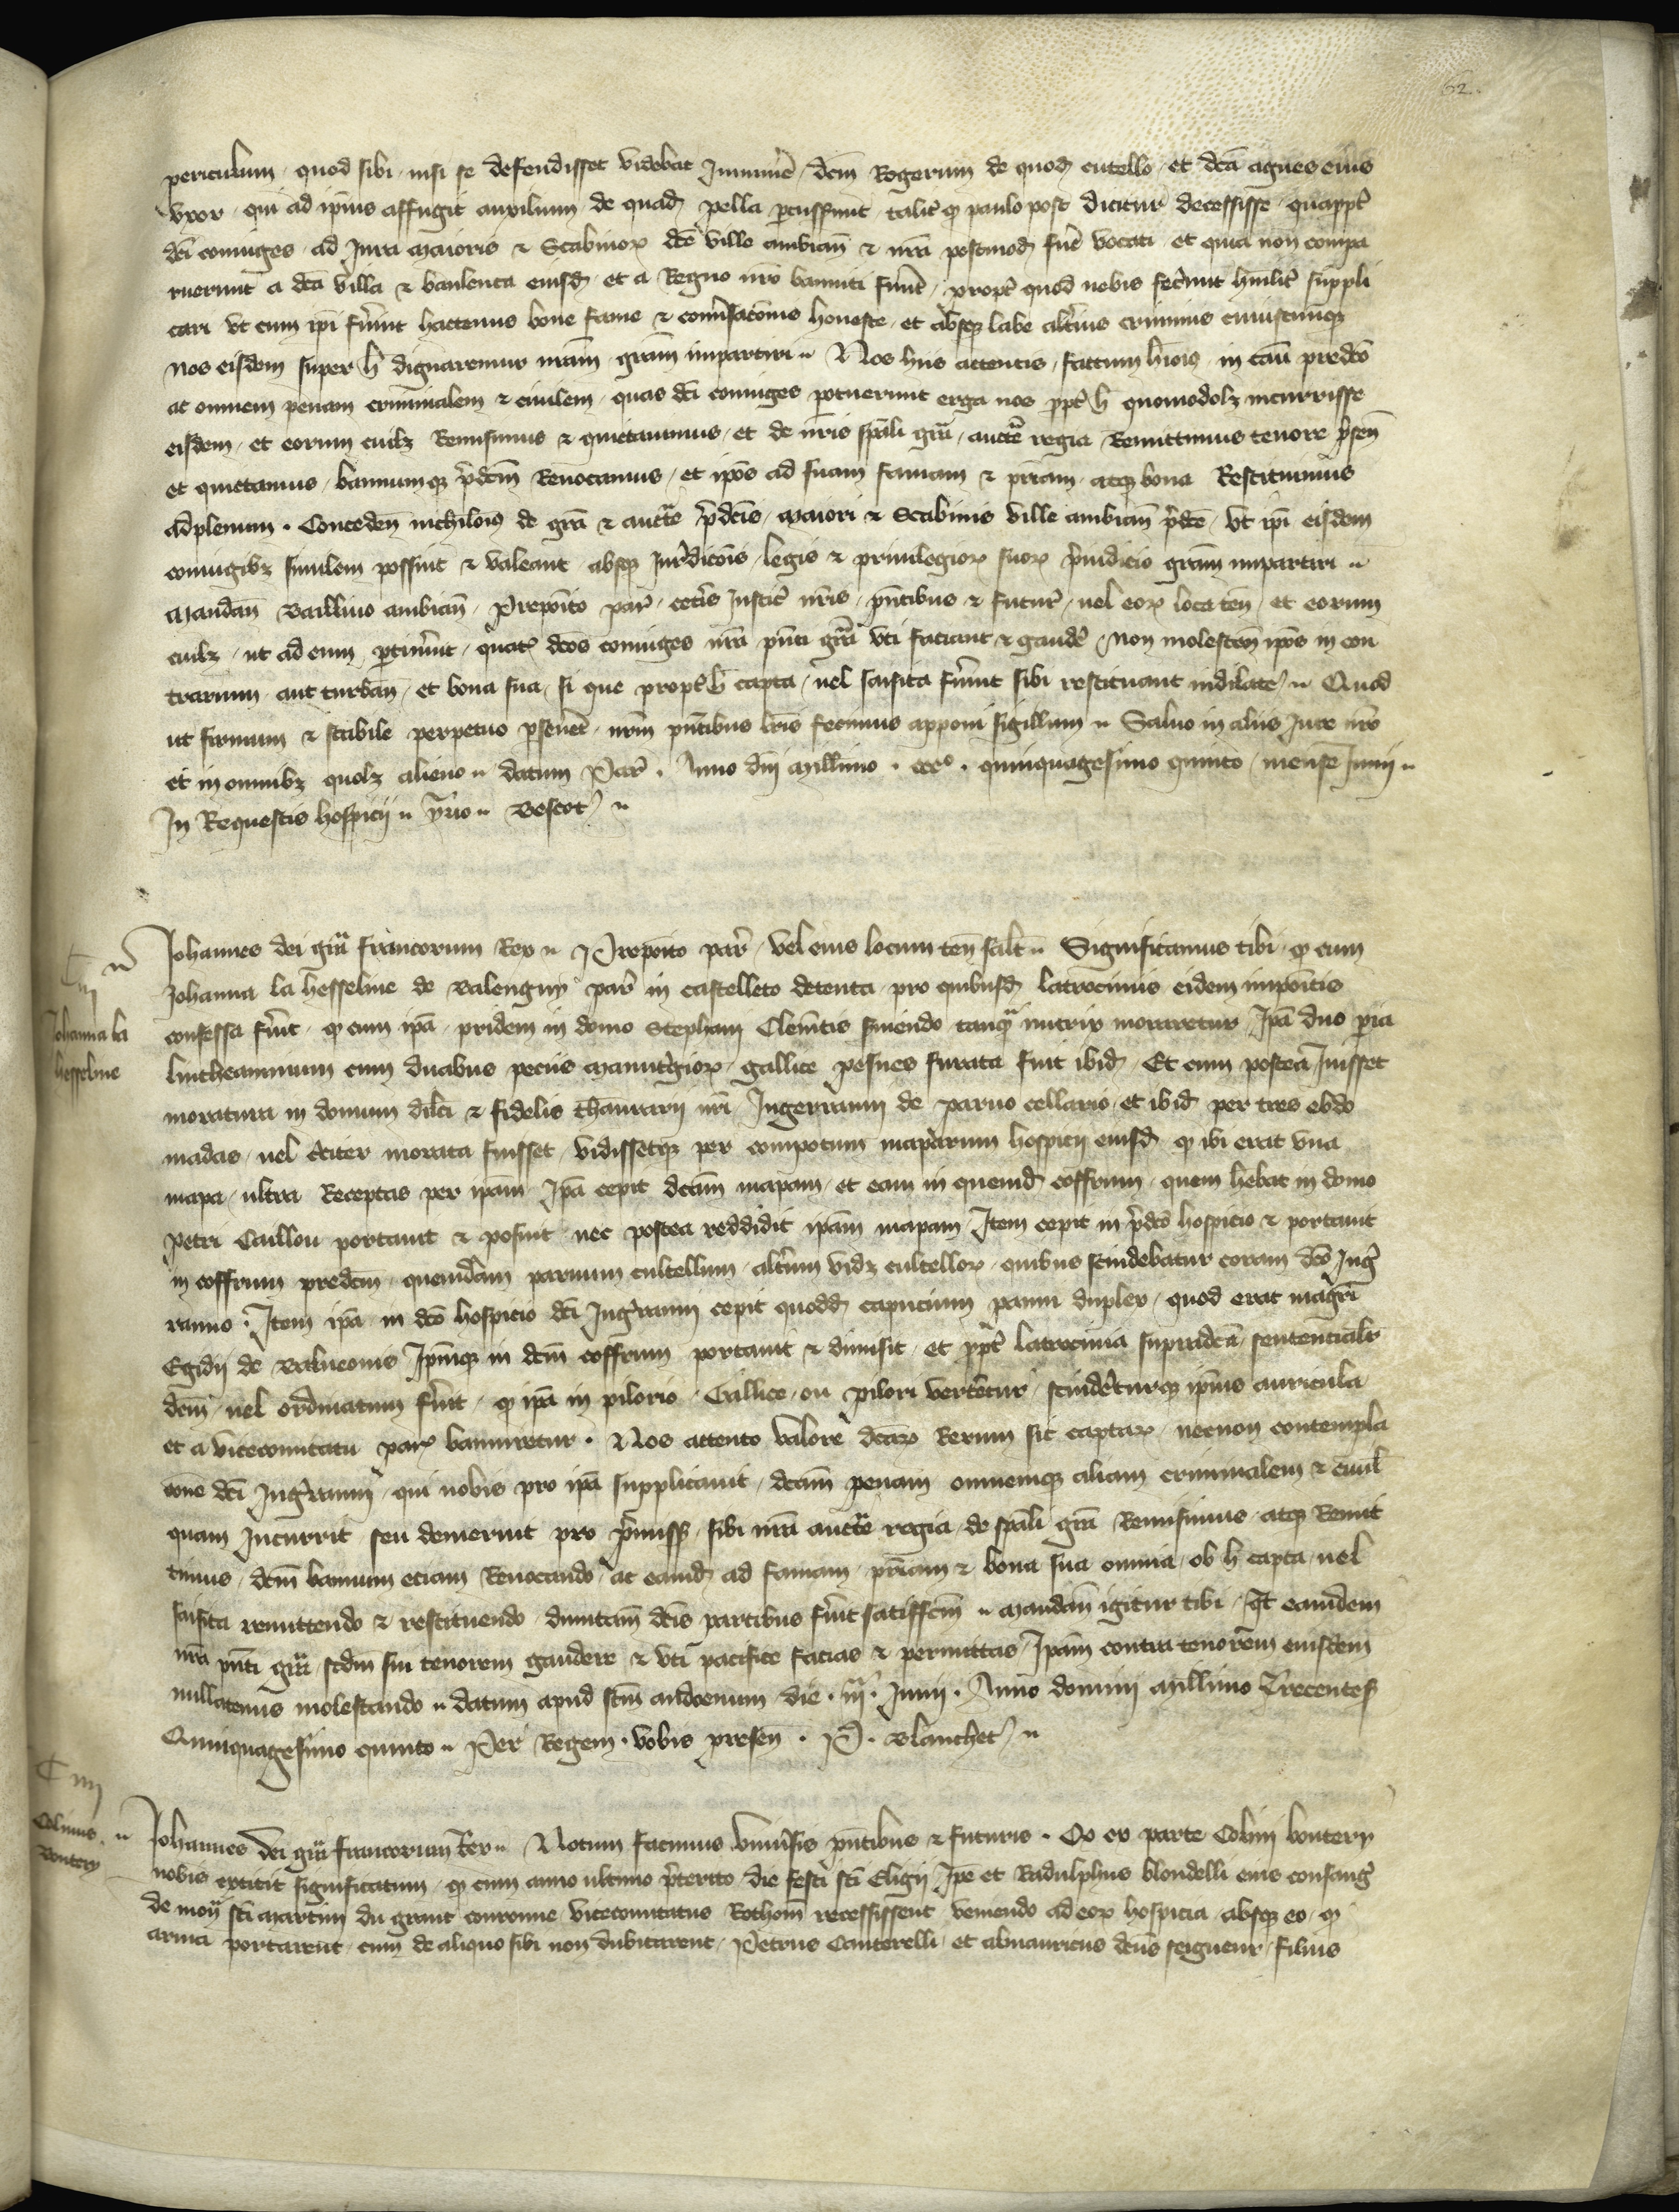 62.
periculum quod sibi nisi se defendisset videbat Iminere dcm Rogerum de quod cutello et dca agnes eius
vxor qui ad ipius affugit auxilium de quad pella percussunt talit q paulo post dicitur decessisse quappt
dci coniuges ad Iura maioris & Scabinor dce ville ambian & nra postmod fuer vocati et quia non compa
ruerunt a dca villa & banleuca eiusd et a Regno nro banniti funt propt quod nobis fecerunt humilit suppli
cari vt cum ipi fuerint hactenus bone fame & conversacionis honeste et absq labe alterius criminis cuiuscunq
nos eisdem super h dignaremur nram gram impartiri Nos hiis attentis factum hmoi in casu predco
ac omnem penam criminalem & ciuilem quas dci coniuges potuerunt erga nos ppt h quomodolz incurrisse
eisdem et eorum cuilz Remisimus & quictauimus et de nris spali gra aucte regia Remittimus tenore psen
et quictamus bannumq pdcm Reuocamus et ipos ad suam famam & priam atq bona Restituimus
adplenum Conceden nichilomi de gra & aucte pdcis maiori & Scabinis ville ambian pdce vt ipi eisdem
coniugibz similem possint & valeant absq Iurdicois legis & priuilegior suor preiudicio gram impartiri
mandan Baillivo ambian Preposito par ceteris Iustic nris pntibus & futur vel eor loca ten et eorum
cuilz ut ad eum ptinuerit quat dcos coniuges nra pnti gra vti faciant & gaude non molesten ipos in con
trarium aut turban et bona sua si que propt h capta vel saisita fuerint sibi restituant indilate Quod
ut firmum & stabile perpetuo perseueret nrm pntibus lris fecimus apponi sigillum Saluo in aliis Iure nro
et in omnibz quolz alieno datum Par Anno dni millimo ccco quinquagesimo quinto mense Iunij
In Requestis hospicij Bescot
C iij
Iohanna la
hesseline
Iohannes dei gra francorum Rex Preposito par vel eius locum ten salt Significamus tibi q cum
Iohanna la hesseline de Valenguy par in castelleto detenta pro quibusd latrociniis eidem impoitis
confessa fuerit q cum ipa pridem in domo Stephani Clemtis seruiendo tanqua nutrix moraretur Ipa duo paria
lintheaminum cum duabus peciis manuthgior gallice pesnes furata fuit ibid Et cum postea Iuisset
moratura in domum dilci & fidelis thaurarij nri Ingerranni de paruo cellario et ibid per tres ebdo
madas vel citer morata fuisset vidissetq per compotum maparum hospicij eiusd q ibi erat vna
mapa ultra Receptas per ipam Ipa cepit dcam mapam et eam in quemd coffrum quem hebat in domo
petri Caillou portauit & posuit nec postea reddidit ipam mapam Item cepit in pdco hospicio & portauit
in coffrum predcm quemdam paruum cultellum alterum videlz cultellor quibus scindebatur coram dco Inger
ranno Item ipa in dco hospicio dci Ingerranni cepit quodd capucium panni duplex quod erat magri
Egidij de Ipmq in dcm coffrum portauit & dimisit et ppt latrocinia supradca sentencialr
dcm vel ordinatum fuerit q ipa in pilorio Gallice ou pilori verteretur scinderetq ipius auricula
et a vicecomitatu par banniretur Nos attento valore dcar Rerum sic captar necnon contempla
cone dci Ingerranni qui nobis pro ipa supplicauit dcam penam omnemq aliam criminalem & ciuil
quam Incurrit seu demeruit pro premiss sibi nra aucte regia de spali gra Remisimus atq Remit
timus dcm bannum eciam Reuocando ac eamd ad famam priam & bona sua omnia ob h capta vel
saisita remittendo & restituendo dumtam dcis partibus fuerit satisfcm mandam igitur tibi qt eamdem
nra pnti gra scdm sui tenorem gaudere & vti pacifice facias & permittas Ipam contra tenorem eiusdem
nullatenus molestando datum apud scm audoenum die iiia Iunij Anno domini millimo Trecentes
Quinquagesimo quinto Per Regem vobis presen P. Blanchet
C iiij
Colinus
Boutery
Iohannes dei gra francorum Rex Notum facimus vniuersis pntibus & futuris Qd ex parte Colini boutery
nobis extitit significatum q cum anno ultimo preterito die festi sci Eligij Ipe et Radulphus blondelli eius consang
de sci martini du grant couronne vicecomitatus Rothom recessissent veniendo ad eor hospicia absq eo q
arma portarent cum de aliquo sibi non dubitarent Petrus Canterelli et abmauricus dcus seigneur filius